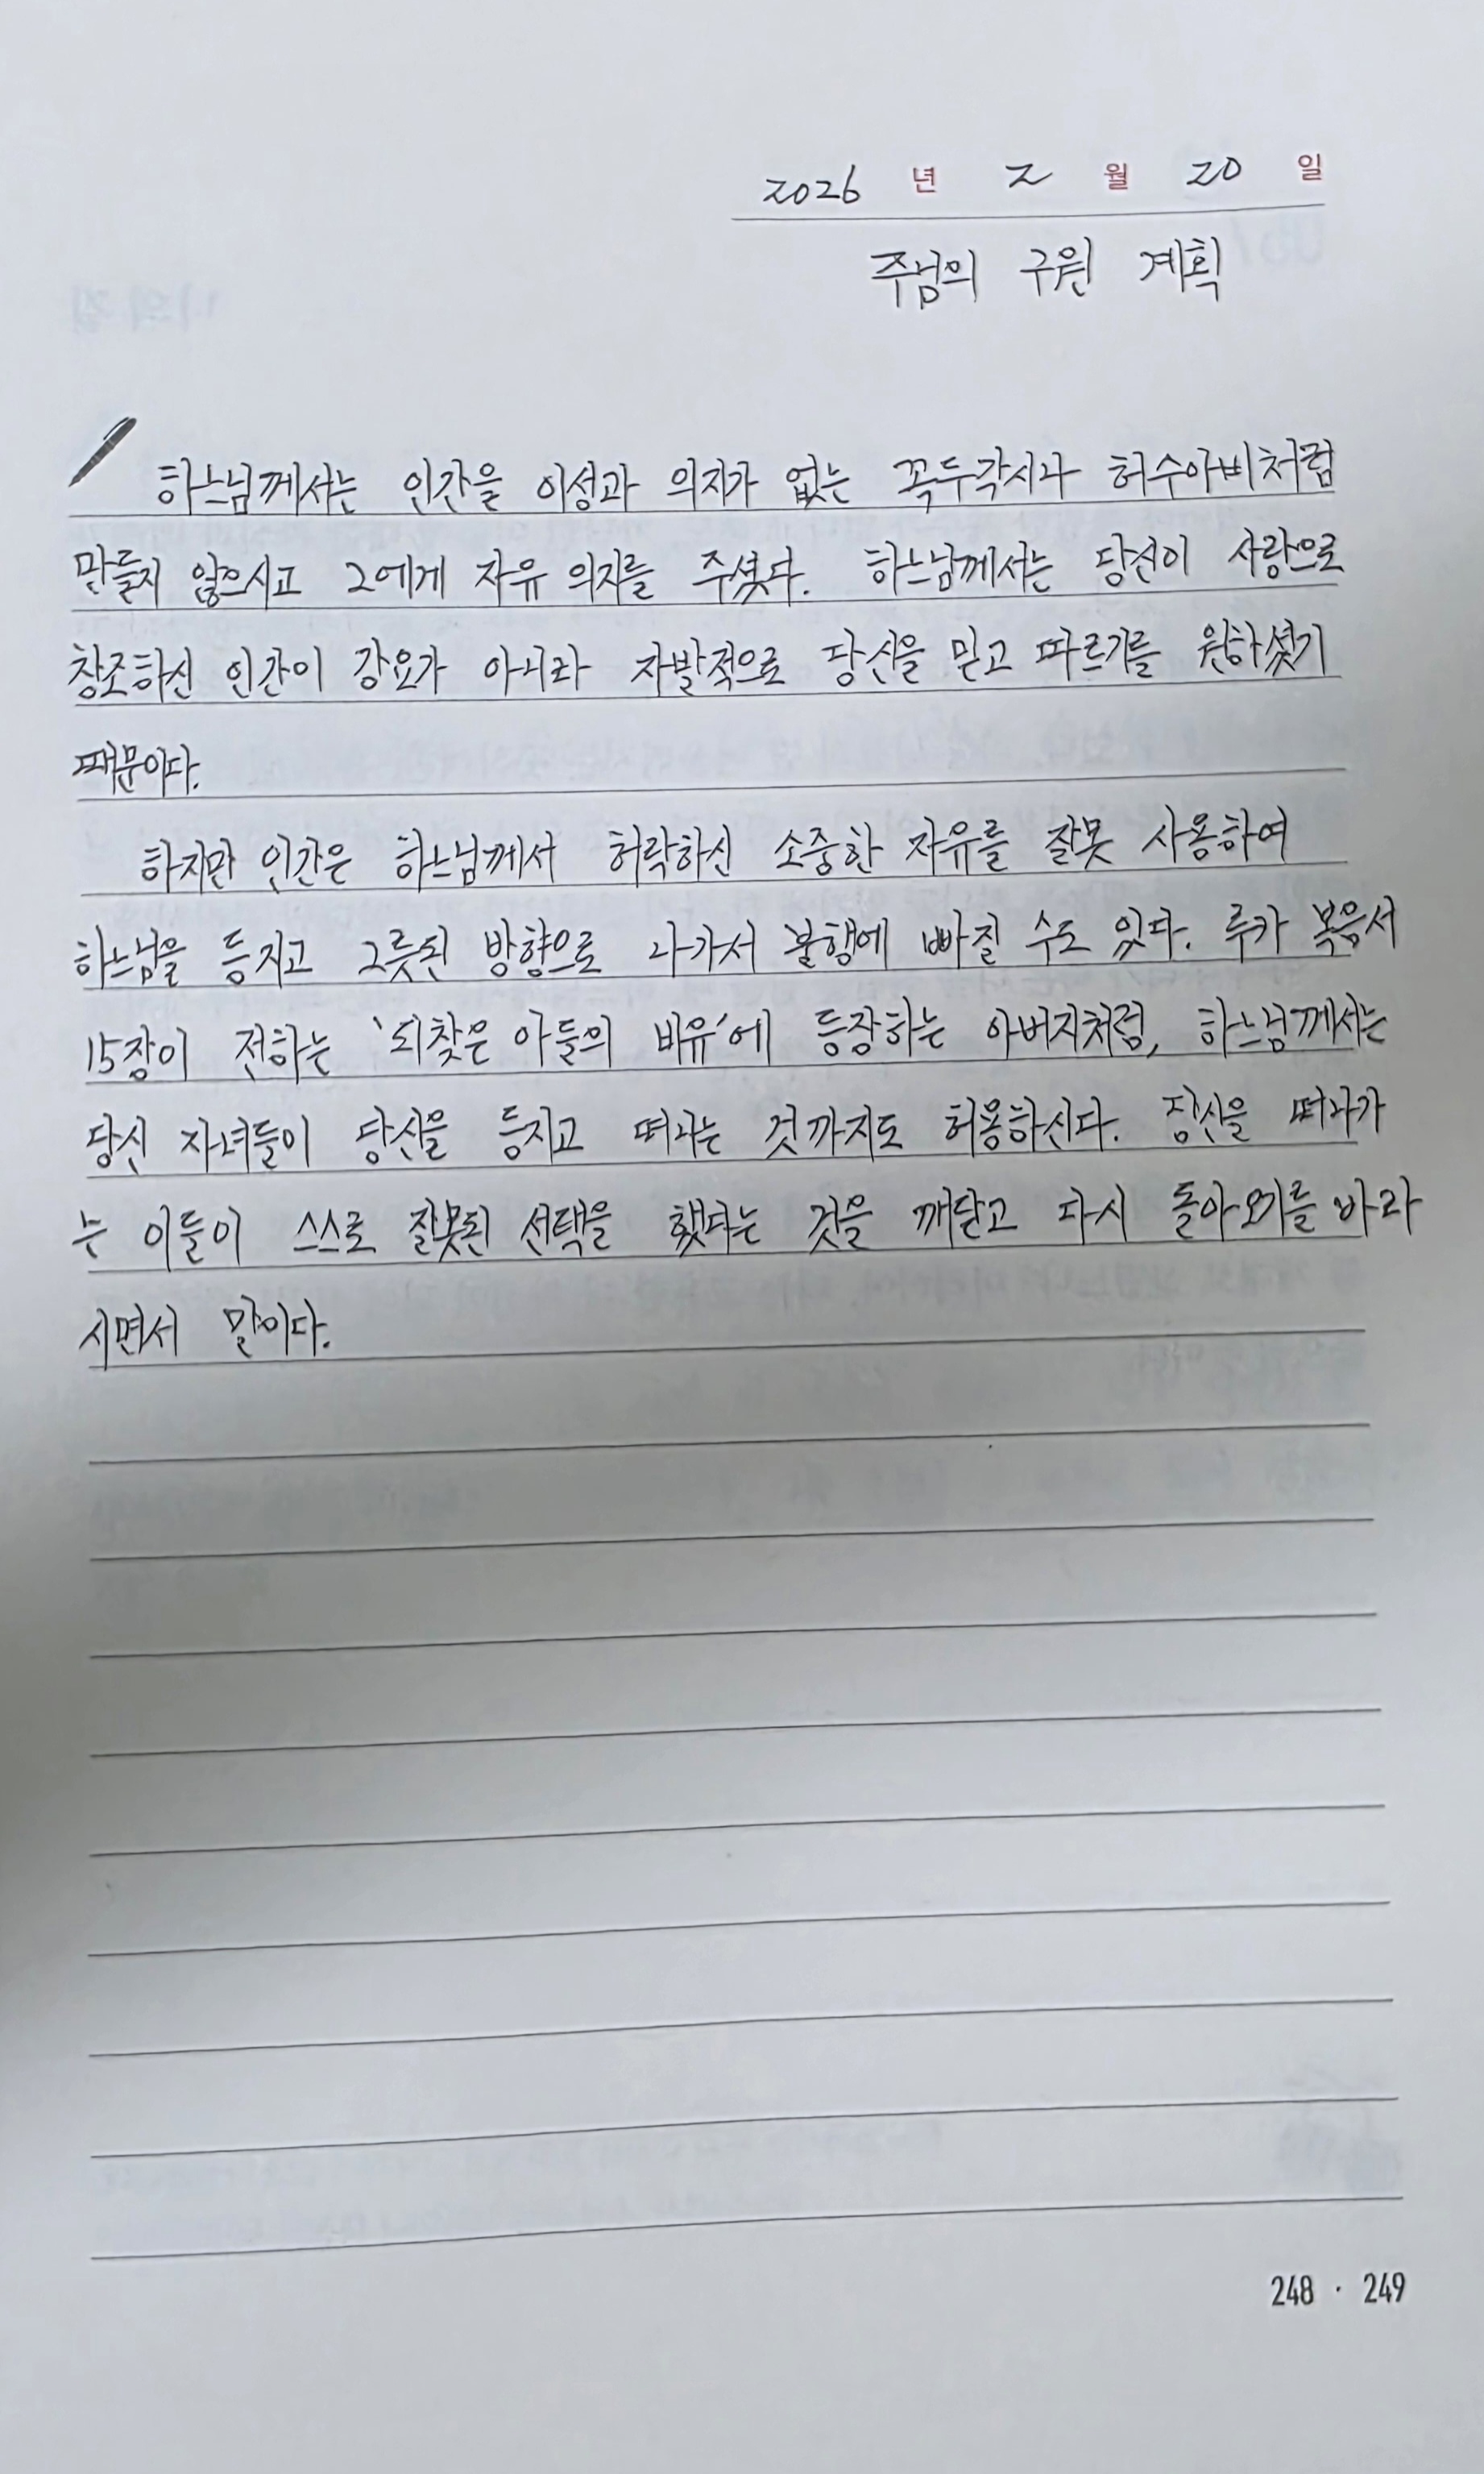 2026 년 2 월 20 일
주님의 구원 계획
하느님께서는 인간을 이성과 의지가 없는 꼭두각시나 허수아비처럼
만들지 않으시고 그에게 자유 의지를 주셨다. 하느님께서는 당신이 사랑으로
창조하신 인간이 강요가 아니라 자발적으로 당신을 믿고 따르기를 원하셨기
때문이다.
하지만 인간은 하느님께서 허락하신 소중한 자유를 잘못 사용하여
하느님을 등지고 그릇된 방향으로 나가서 불행에 빠질 수도 있다. 루카 복음서
15장이 전하는 '되찾은 아들의 비유'에 등장하는 아버지처럼, 하느님께서는
당신 자녀들이 당신을 등지고 떠나는 것까지도 허용하신다. 당신을 떠나가
는 이들이 스스로 잘못된 선택을 했다는 것을 깨닫고 다시 돌아오기를 바라
시면서 말이다.
248 · 249